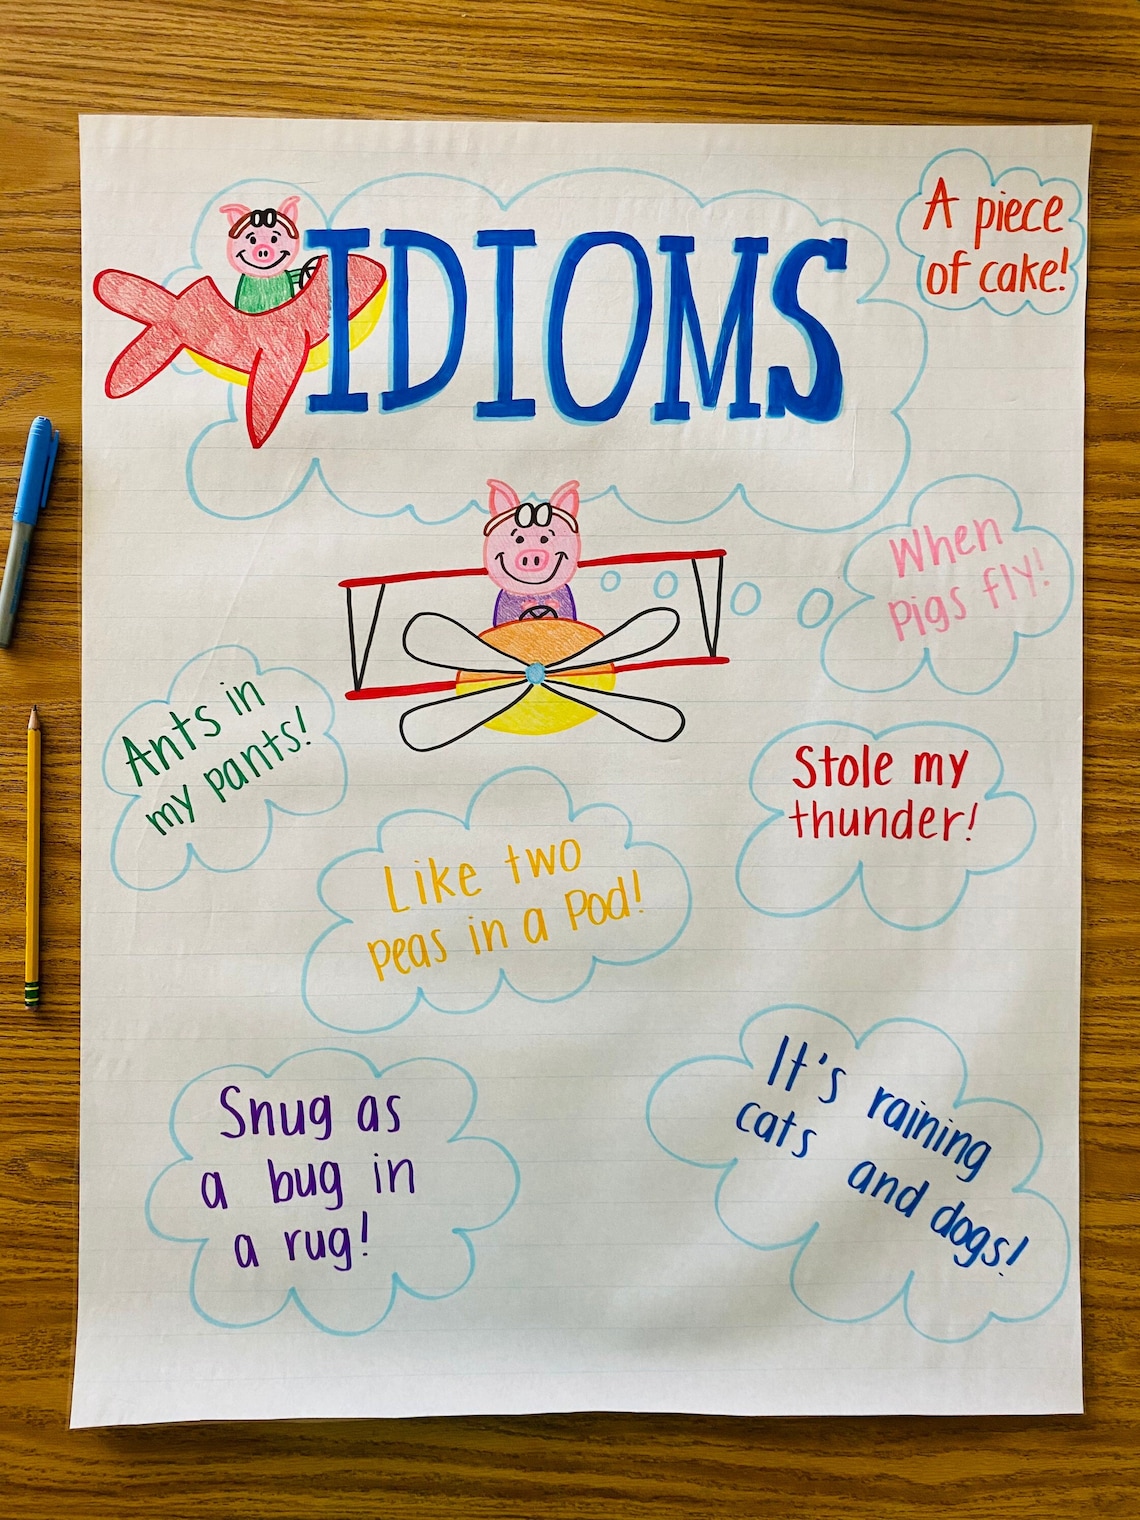 IDIOMS
A piece
of cake!
When
pigs fly!
Ants in
my pants!
Stole my
thunder!
Like two
peas in a Pod!
Snug as
a bug in
a rug!
It's raining
cats and dogs!